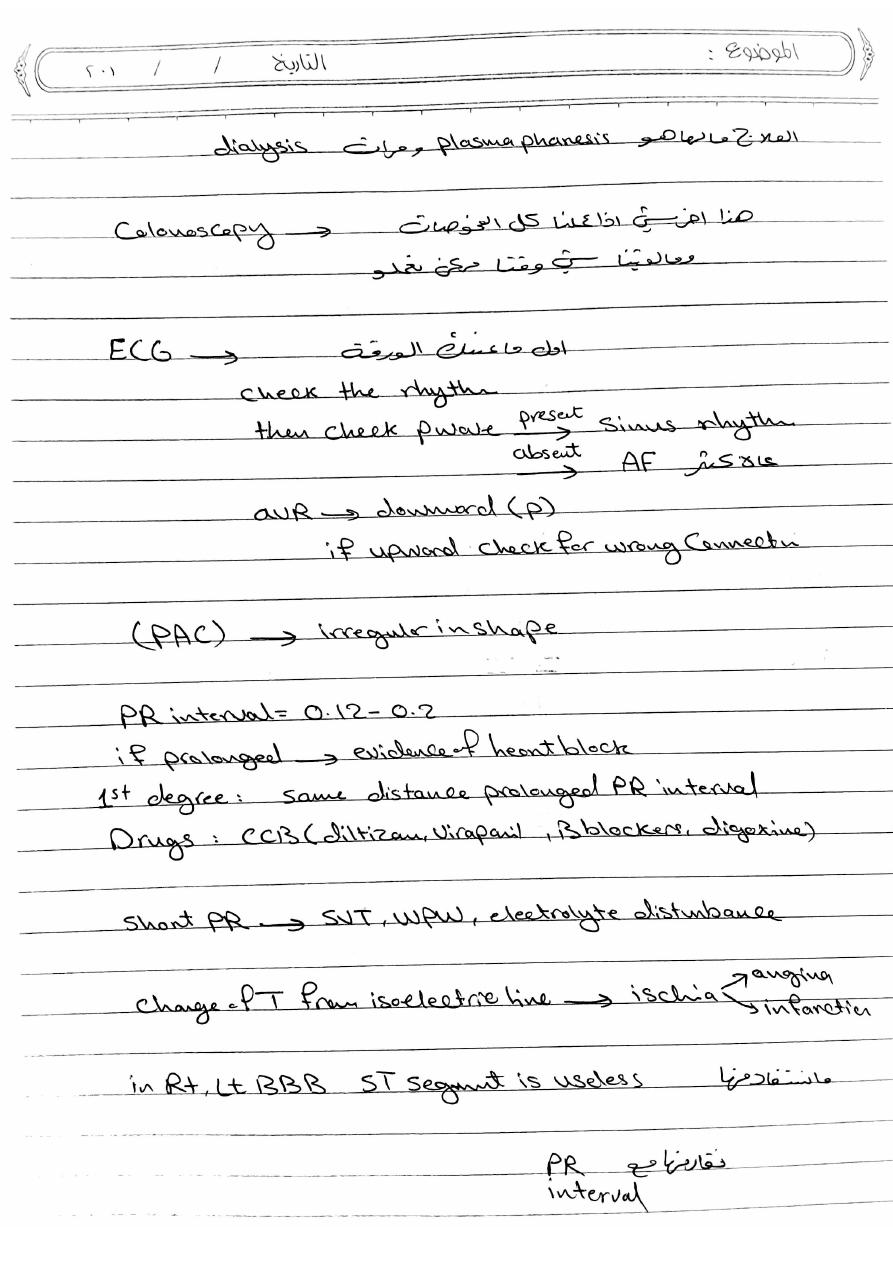 الموضوع :
التاريخ / / ٢٠١
العلاج مالها هو plasmaphanesis ومرات dialysis
Colonoscopy → هنا اخر شي اذا عملنا كل الفحوصات
ومالقينا شي وقتا
ECG → اول ما الورقة
check the rhythm
then check pwave present → Sinus rhythm
absent → AF
aVR → downward (p)
if upward check for wrong Connectn
(PAC) → irregular in shape
PR interval = 0.12 - 0.2
if prolonged → evidence of heart block
1st degree : same distance prolonged PR interval
Drugs : CCB (diltizam, Virapamil , B blockers, digoxine)
Short PR → SVT, WPW, electrolyte disturbance
Change of T from isoelectric line → ischia angina
infarction
in Rt, Lt BBB ST segmnt is useless مانستفاد منها
نقارنها مع PR
interval